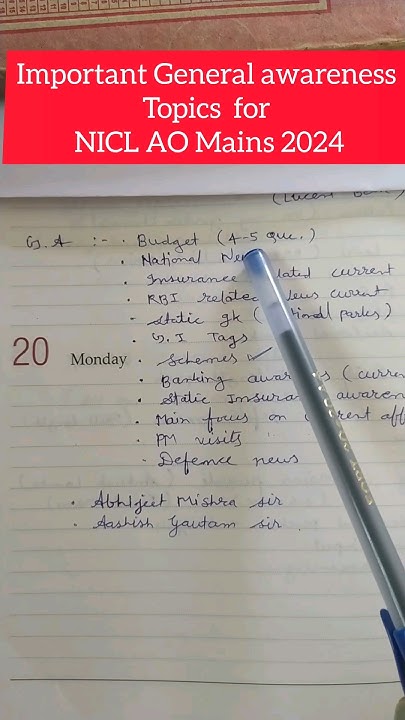 Important General awareness
Topics for
NICL AO Mains 2024
(Lucent
G.A :- · Budget (4-5 Que.)
· National
· Insurance current
· RBI related News current
- Static gk (
· G.I Tags
20 Monday · Schemes ✓
· Banking (
· Static
· Main focus on
· PM visits
· Defence news
· Abhijeet Mishra sir
· Aashish Gautam sir